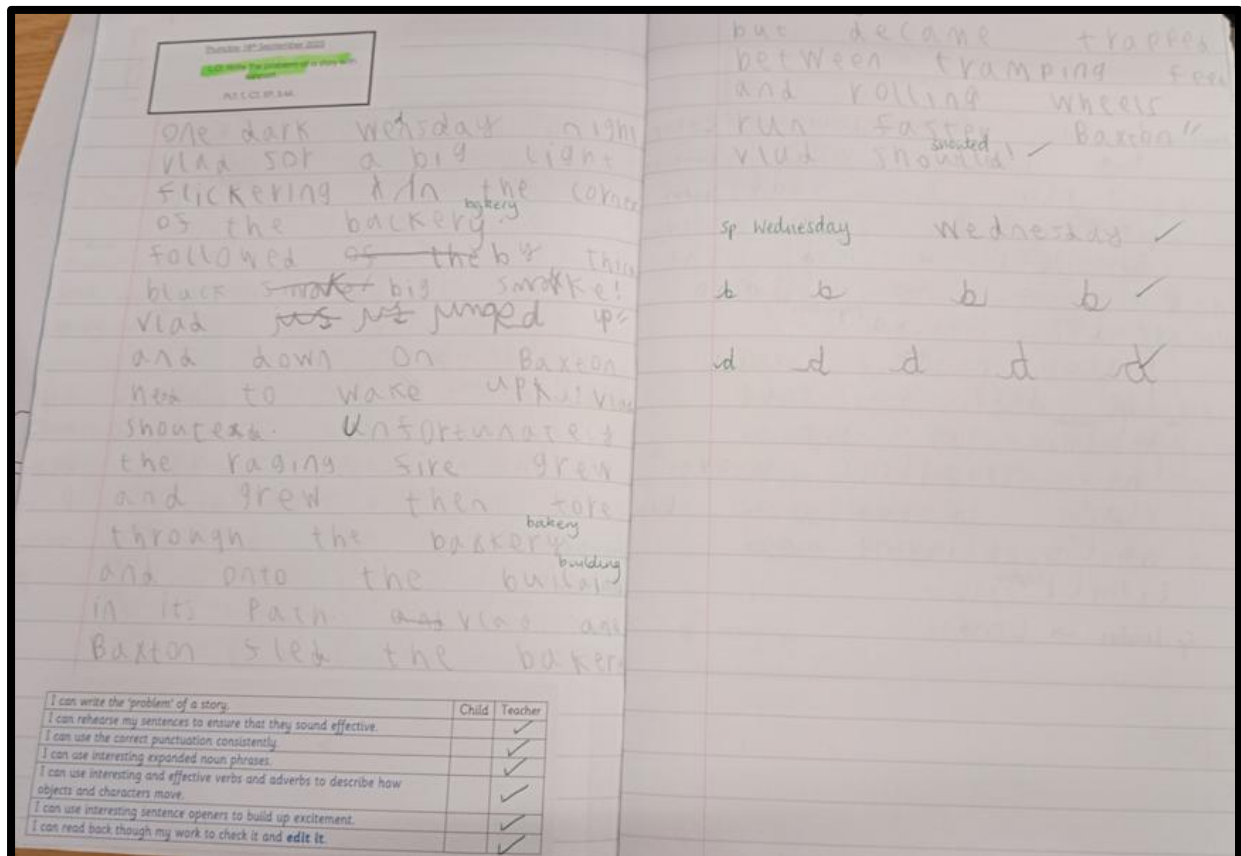 Thursday 18th September 2025
L.O: Write the problem of a story with
support
one dark wensday night
vlad sor a big light
flickering in the corner
bakery
of the backery.
followed of the by thick
black smoke big smoke!
vlad junged up
and down on Baxton
to wake up vlad
shouted. Unfortunately
the raging fire grew
and grew then tore
bakery
through the backery
building
and onto the building
in its path and vlad and
Baxton fled the baker
I can write the 'problem' of a story. Child Teacher
I can rehearse my sentences to ensure that they sound effective. ✓
I can use the correct punctuation consistently. ✓
I can use interesting expanded noun phrases. ✓
I can use interesting and effective verbs and adverbs to describe how
objects and characters move. ✓
I can use interesting sentence openers to build up excitement. ✓
I can read back though my work to check it and edit it. ✓
but becane trapped
between tramping feet
and rolling wheels
run faster Baxton"
shouted
vlad ✓
sp Wednesday Wednesday ✓
b b b b ✓
d d d d d